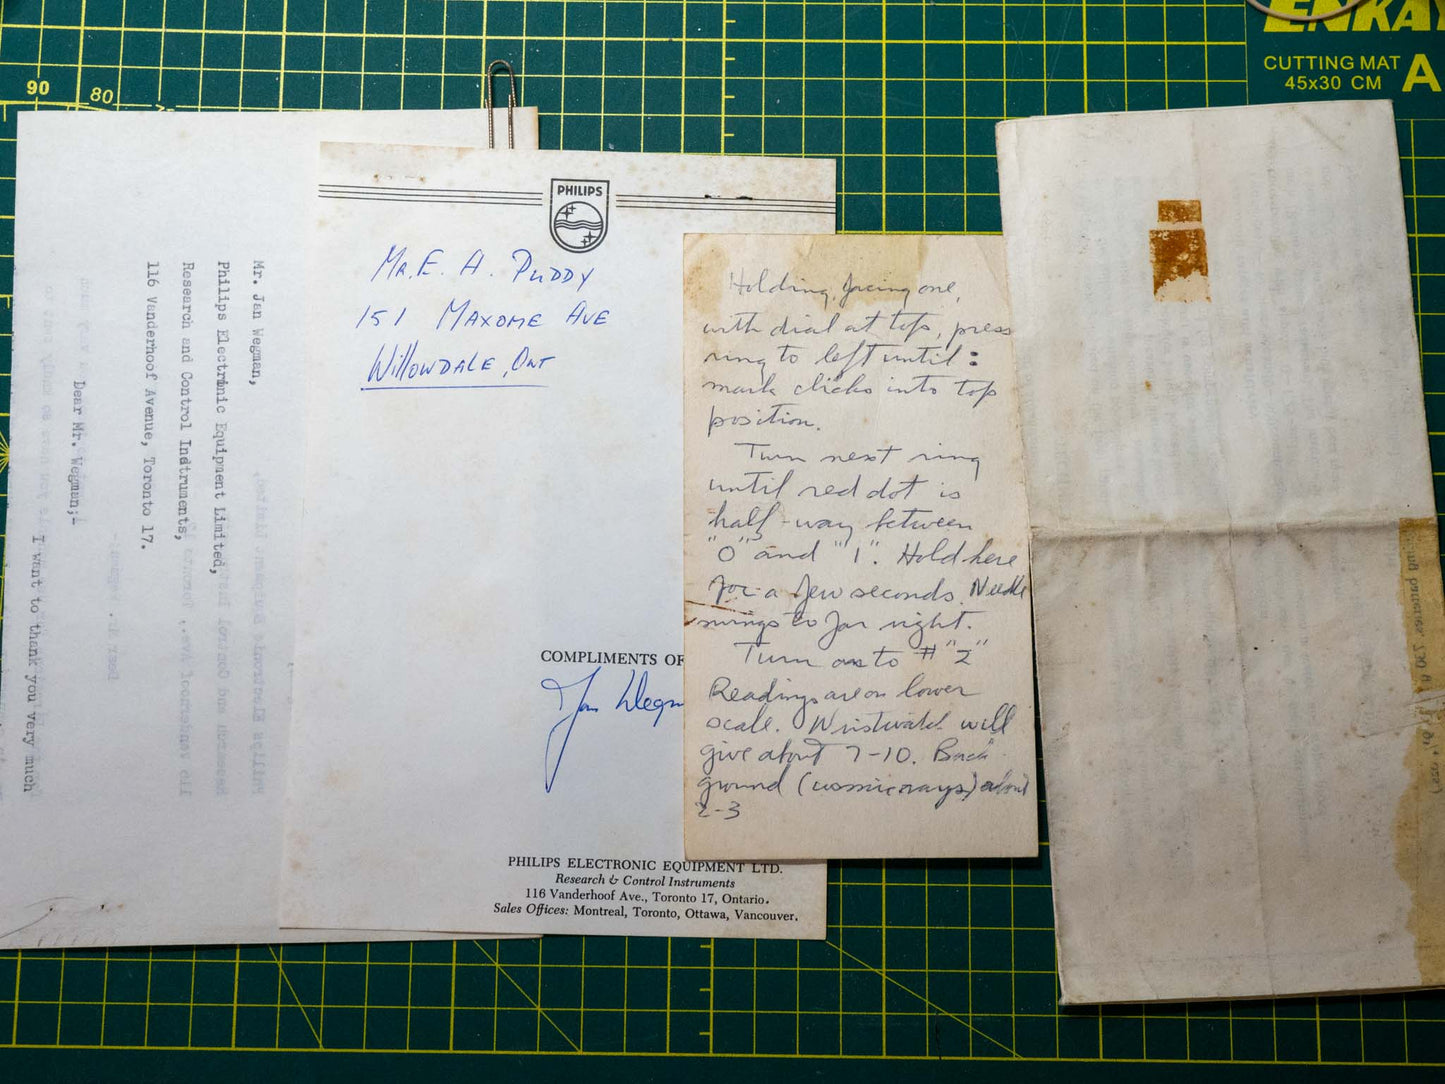 ENKAY
CUTTING MAT
45x30 CM
A
90
80
Mr. Jan Wegman,
Philips Electrinic Equipment Limited,
Research and Control Indtruments,
116 Vanderhoof Avenue, Toronto 17.
Dear Mr. Wegman;
I want to thank you very much
PHILIPS
Mr. E. A. Puddy
151 Maxome Ave
Willowdale, Ont
COMPLIMENTS OF
Jan Wegm
PHILIPS ELECTRONIC EQUIPMENT LTD.
Research & Control Instruments
116 Vanderhoof Ave., Toronto 17, Ontario.
Sales Offices: Montreal, Toronto, Ottawa, Vancouver.
Holding, facing one,
with dial at top, press
ring to left until :
mark clicks into top
position.
Turn next ring
until red dot is
half-way between
"0" and "1". Hold here
for a few seconds. Needle
swings to far right.
Turn on to # "2"
Readings are on lower
scale. Wristwatch will
give about 7-10. Back
ground (cosmic rays) about
2-3